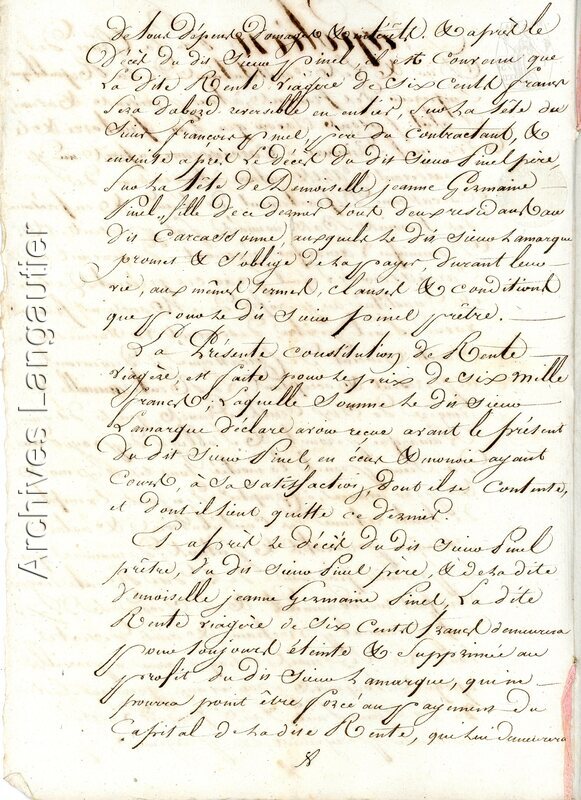 de tous dépens Domages & intérêts. & après le
Décès du dit Sieur Pinel, il est Convenu que
La dite Rente viagère de Six Cents francs
Sera dabord reversible en entier, sur La tête du
Sieur françois pinel père du Contractant, &
ensuite après Le décès du dit Sieur Pinel père,
Sur La tête de Demoiselle jeanne Germaine
Pinel, fille de ce dernier tous deux residans au
dit Carcassonne, auxquels Le dit Sieur Lamarque
promet & s'oblige de La payer durant leur
vie, aux mêmes termes, clauses & conditions
que pour le dit Sieur pinel prêtre.
La Présente constitution de Rente
viagère, est faite pour le prix de Six mille
francs, Laquelle Somme Le dit Sieur
Lamarque déclare avoir reçue avant le présent
du dit Sieur Pinel, en écus & monoie ayant
Cours, à Sa Satisfaction, dont il se Contente,
et dont il tient quitte ce dernier.
Et après Le décès du dit Sieur Pinel
prêtre, du dit Sieur Pinel père, & de La dite
demoiselle jeanne Germaine Pinel, La dite
Rente viagère de Six Cents francs demeurera
pour toujours éteinte & Supprimée au
profit du dit Sieur Lamarque, qui ne
pourra point être forcé au payement du
Capital de La dite Rente, qui Lui demeurera
Archives Langautier